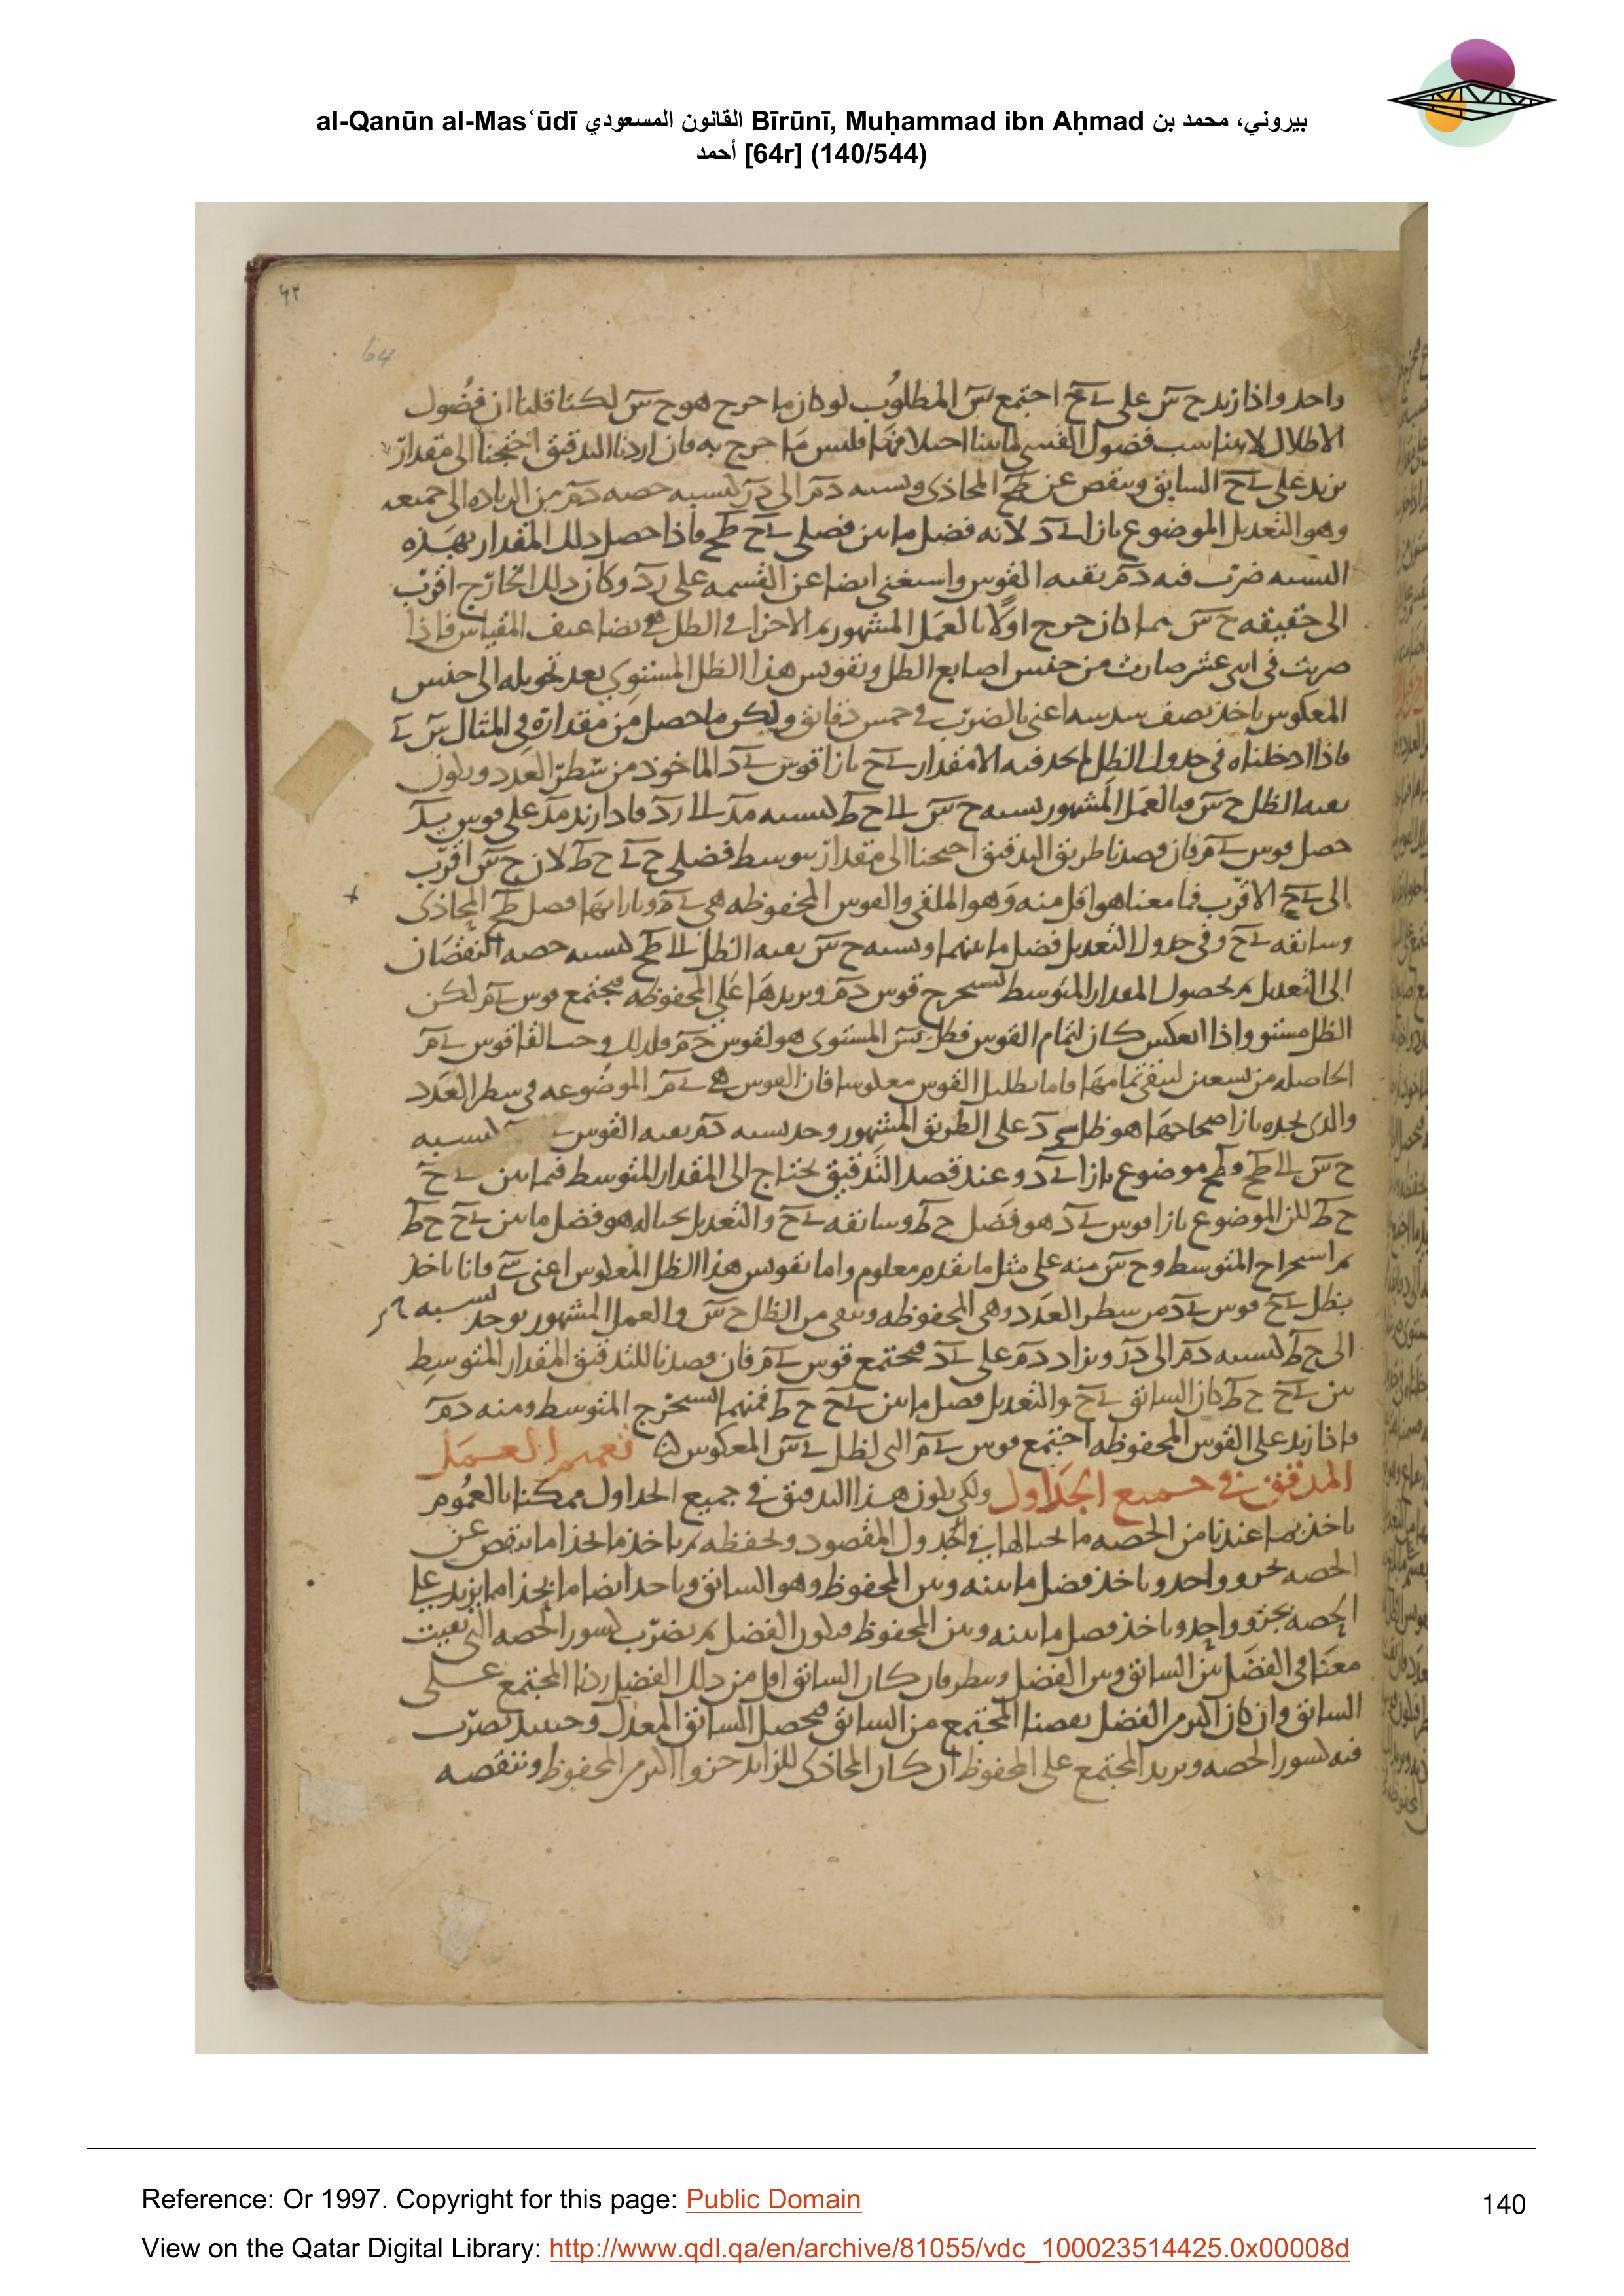 al-Qanūn al-Masʿūdī القانون المسعودي Bīrūnī, Muḥammad ibn Aḥmad بيروني، محمد بن
أحمد [64r] (140/544)
64
واحد واذا زيد ح س على ى ح اجتمع س المطلوب لو كان ما خرج هو ح س لكنا قلنا ان فضول
الاطلال لا يناسب فضول القسى لما بينا اختلافها فليس ما خرج به فان اردنا التدقيق احتجنا الى مقدار
يزيد على ى ح السابق وينقص عن ط ح المحاذى ونسبه د م الى د ر كنسبه حصه د م من الزياده الى جميعه
وهو التعديل الموضوع بازا ى د لانه فضل ما بين فصلى ى ح ط ح فاذا حصل ذلك المقدار بهذه
النسبه ضرب فيه د م بقيه القوس واستغنى ايضا عن القسمه على ر د وكان ذلك الخارج اقرب
الى حقيقه ح س مما كان خرج اولا بالعمل المشهور ثم الاجزا فى الظل هى تضاعيف المقياس فاذا
ضربت فى اثنى عشر صارت من جنس اصابع الظل وتقويس هذا الظل المستوى بعد تحويله الى جنس
المعكوس باخذ نصف سدسه اعنى بالضرب فى خمس دقايق وليكن ما حصل من مقداره فى المثال س ى
فاذا ادخلناه فى جدول الظل لم نجد فيه الا مقدار ى ح بازا قوس ى د الماخوذ من سطر العدد ويكون
بقيه الظل ح س فبالعمل المشهور نسبه ح س الى ح ط كنسبه م د الى ر د فاذا زيد م د على قوس ى د
حصل قوس ى م فان قصدنا طريق التدقيق احتجنا الى مقدار يتوسط فضلى ح ى ح ط لان ح س اقرب
الى ى ح الاقرب فما معنا هو اقل منه وهو الملقى والقوس المحفوظه هى ى م وبازايها فضل ط ح المحاذى
وسابقه ى ح وفى جدول التعديل فضل ما بينهما ونسبه ح س بقيه الظل الى ط ح كنسبه حصه النقصان
الى التعديل ثم بحصول المقدار المتوسط نستخرج قوس د م ونزيدها على المحفوظه فيجتمع قوس ى م لكن
الظل مستو واذا انعكس كان لتمام القوس فظل س المستوى هو لقوس ح م فلذلك وجب القا قوس ى م
الحاصله من تسعين ليبقى تمامها فاما بظليل القوس معكوسا فان القوس هى ى م الموضوعه فى سطر العدد
والذى نجده بازا صحاحها هو ظل ى د على الطريق المشهور وجد نسبه د م بقيه القوس كنسبه
ح س الى ط ح و ط ح موضوع بازا ى د وعند قصد التدقيق نحتاج الى المقدار المتوسط فيما بين ى ح
ح ط لكن الموضوع بازا قوس ى د هو فضل ح ط وسابقه ى ح والتعديل بحياله هو فضل ما بين ى ح ح ط
ثم استخراج المتوسط و ح س منه على مثل ما تقدم معلوم واما تقويس هذا الظل المعكوس اعنى س ى فانا ناخذ
بظل ى ح قوس ى د من سطر العدد وهى المحفوظه ويبقى من الظل ح س والعمل المشهور يوجد نسبه ح س
الى ح ط كنسبه د م الى د ر ويزاد د م على ى د فيجتمع قوس ى م فان قصدنا للتدقيق المقدار المتوسط
بين ى ح ح ط كان السابق ى ح والتعديل فضل ما بين ى ح ح ط فمنهما نستخرج المتوسط ومنه د م
فاذا زيد على القوس المحفوظه اجتمع قوس ى م التى لظل ى س المعكوس تعميم العمل
المدقق فى جميع الجداول ولكى يكون هذا التدقيق فى جميع الجداول ممكنا بالعموم
ناخذ بما عندنا من الحصه ما بحيالها فى الجدول المقصود ونحفظه ثم ناخذ ما بحذا ما ينقص عن
الحصه بجزو واحد وناخذ فضل ما بينه وبين المحفوظ وهو السابق وناخذ ايضا ما بحذا ما يزيد على
الحصه بجزو واحد وناخذ فضل ما بينه وبين المحفوظ فيكون الفضل ثم نضرب كسور الحصه التى بقيت
معنا فى الفضل بين السابق وبين الفضل وننظر فان كان السابق اقل من ذلك الفضل زدنا المجتمع على
السابق وان كان اكثر من الفضل نقصنا المجتمع من السابق فيحصل السابق المعدل وحينئذ نضرب
فيه كسور الحصه ونزيد المجتمع على المحفوظ ان كان المحاذى للزايد جزوا اكثر من المحفوظ وننقصه
Reference: Or 1997. Copyright for this page: Public Domain
140
View on the Qatar Digital Library: http://www.qdl.qa/en/archive/81055/vdc_100023514425.0x00008d